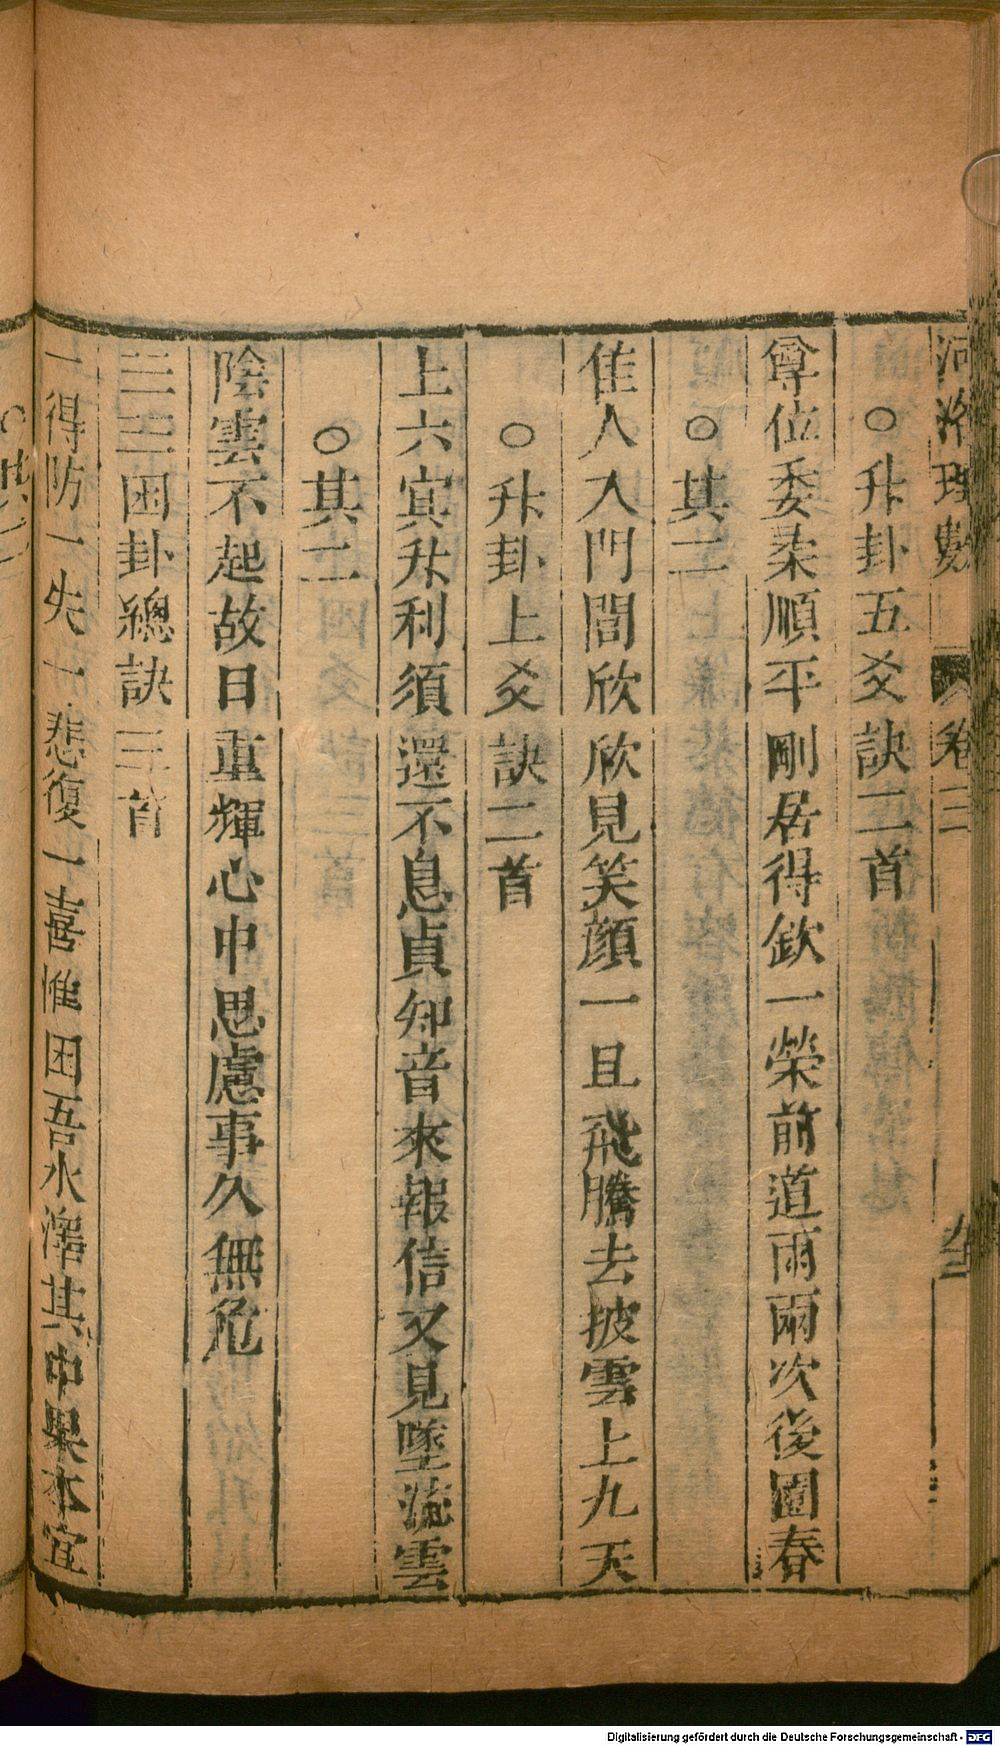 河洛理數 卷三
○升卦五爻訣二首
尊位委柔順平剛居得欽一榮前道雨兩次後園春
○其二
佳人入門閭欣欣見笑顔一旦飛騰去披雲上九天
○升卦上爻訣二首
上六㝠升利須還不息貞知音來報信又見墜流雲
○其二
陰雲不起故日重輝心中思慮事久無危
困卦總訣三首
一得防一失一悲復一喜惟困吾水澤其中果本宜
○其二
Digitalisierung gefördert durch die Deutsche Forschungsgemeinschaft - DFG